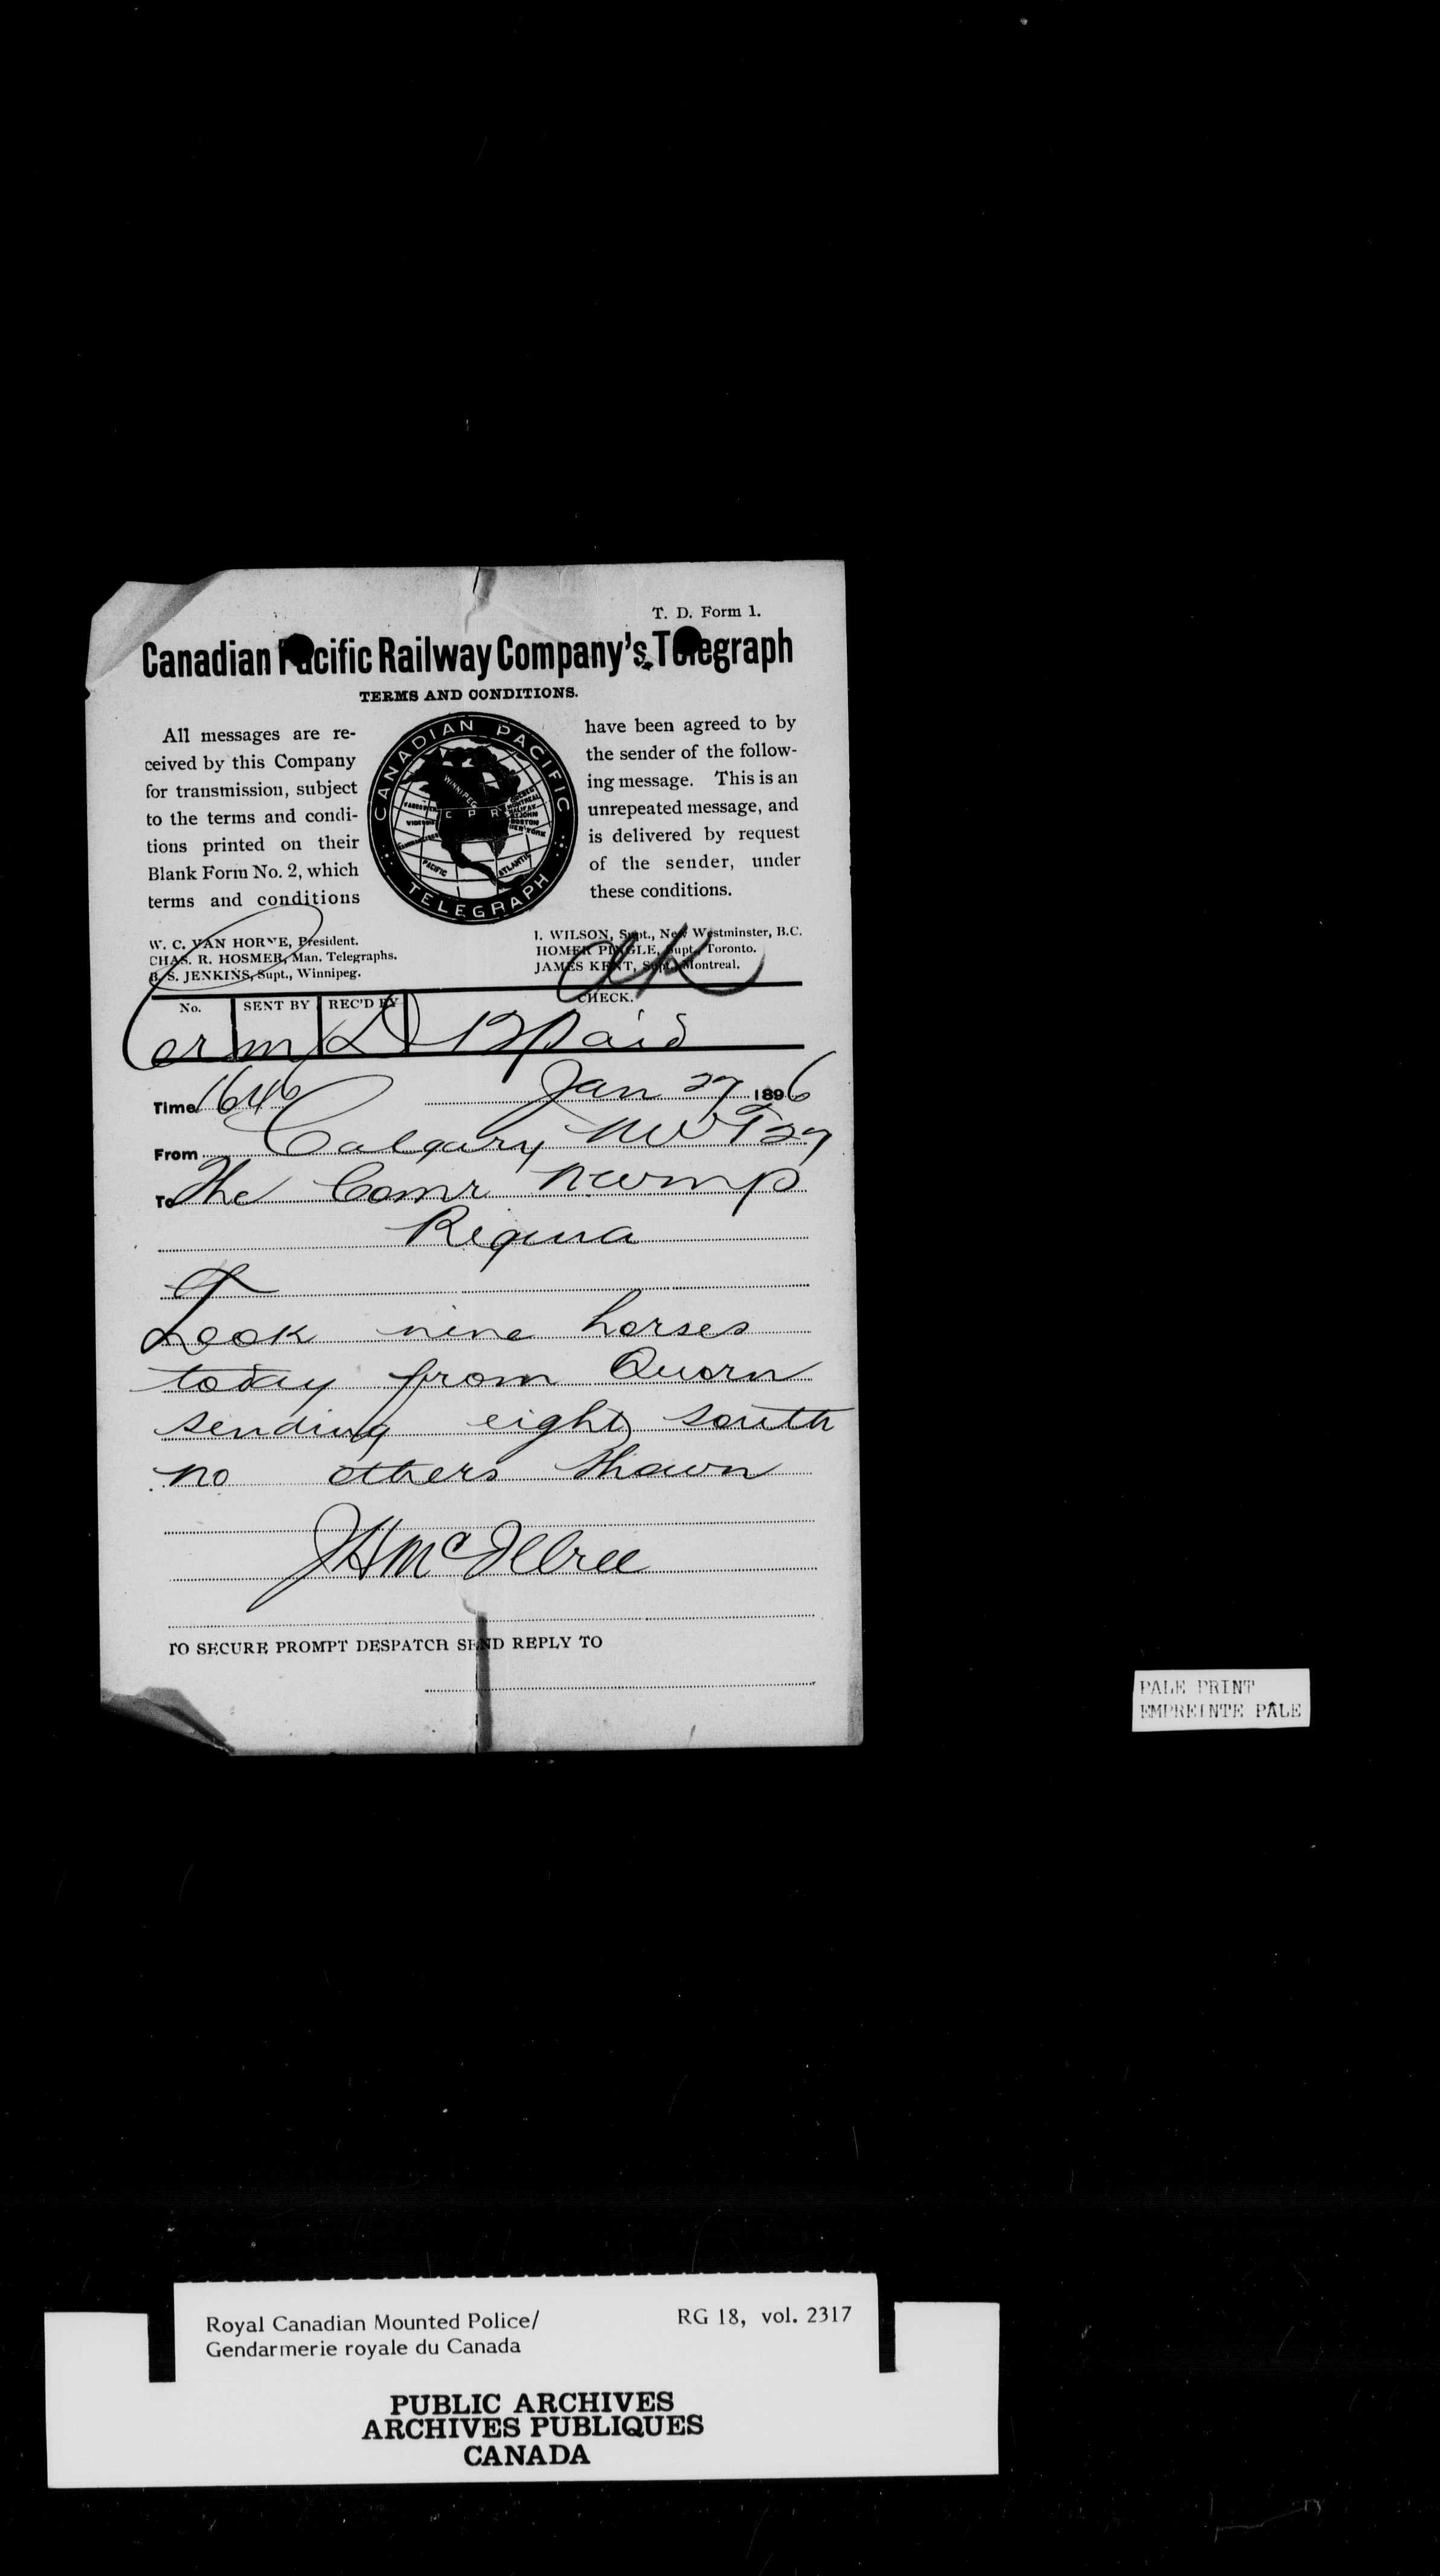 T. D. Form 1.
Canadian Pacific Railway Company's Telegraph
TERMS AND CONDITIONS.
All messages are re-
ceived by this Company
for transmission, subject
to the terms and condi-
tions printed on their
Blank Form No. 2, which
terms and conditions
CANADIAN PACIFIC
WINNIPEG
C P R
PACIFIC
ATLANTIC
TELEGRAPH
have been agreed to by
the sender of the follow-
ing message. This is an
unrepeated message, and
is delivered by request
of the sender, under
these conditions.
W. C. VAN HORNE, President.
CHAS. R. HOSMER, Man. Telegraphs.
B. S. JENKINS, Supt., Winnipeg.
J. WILSON, Supt., New Westminster, B.C.
HOMER PINGLE, Supt., Toronto.
JAMES KENT, Supt., Montreal.
No. SENT BY REC'D BY CHECK.
m D 12 Paid
Time 1646 Jan 27 1896
From Calgary NWT 27
To The Comr nwmp
Regina
Took nine horses
today from Quorn
sending eight south
no others shown
JH McIllree
TO SECURE PROMPT DESPATCH SEND REPLY TO
PALE PRINT
EMPREINTE PÂLE
Royal Canadian Mounted Police/
Gendarmerie royale du Canada
RG 18, vol. 2317
PUBLIC ARCHIVES
ARCHIVES PUBLIQUES
CANADA